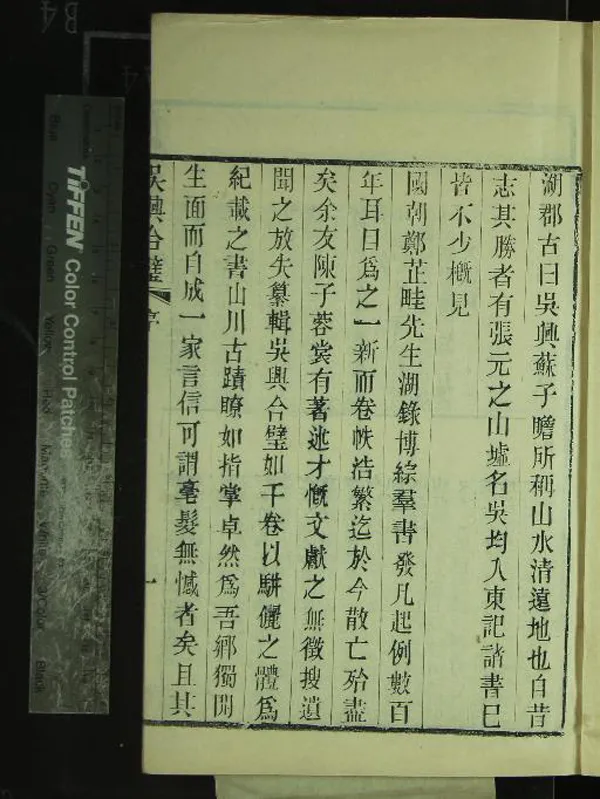 湖郡古曰吳興蘇子瞻所稱山水清遠地也自昔
志其勝者有張元之山墟名吳均入東記諸書已
皆不少概見
國朝鄭芷畦先生湖錄博綜羣書發凡起例數百
年耳目爲之一新而卷帙浩繁迄於今散亡殆盡
矣余友陳子蓉裳有著述才慨文獻之無徵搜遺
聞之放失纂輯吳興合璧如干卷以駢儷之體爲
紀載之書山川古蹟瞭如指掌卓然爲吾鄉獨開
生面而自成一家言信可謂毫髮無憾者矣且其
吳興合璧 序 一
TIFFEN Color Control Patches
Blue
Cyan
Green
Yellow
Red
Magenta
White
3/Color
Black
B4